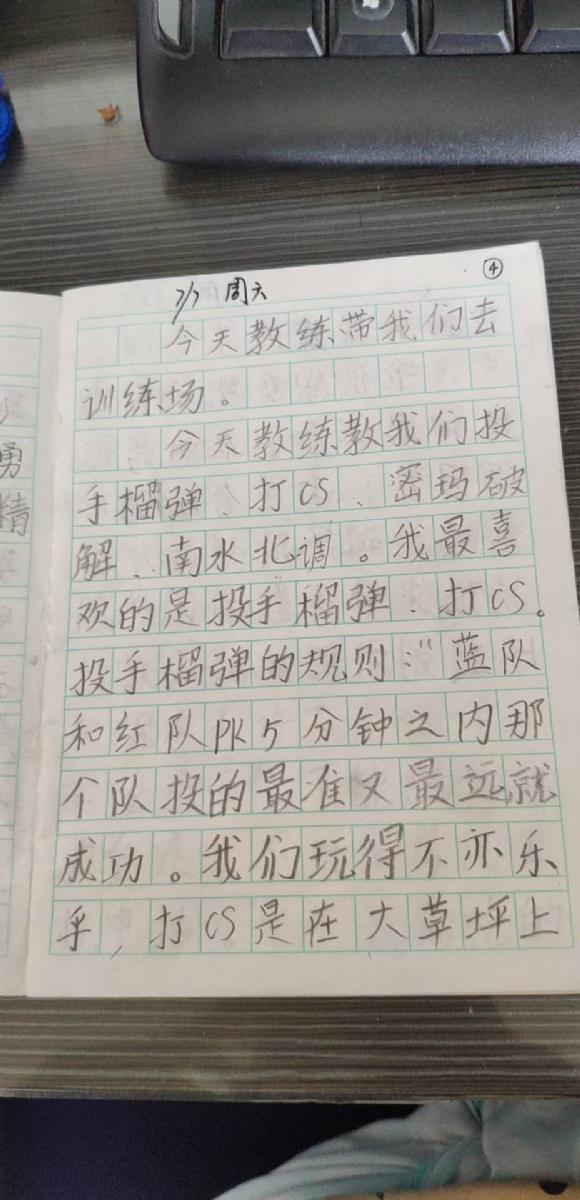 ④
7/7 周天
今天教练带我们去
训练场。
今天教练教我们投
手榴弹、打CS、密玛破
解、南水北调。我最喜
欢的是投手榴弹、打CS。
投手榴弹的规则:“蓝队
和红队PK5分钟之内那
个队投的最准又最远就
成功。我们玩得不亦乐
乎,打CS是在大草坪上
勇
情